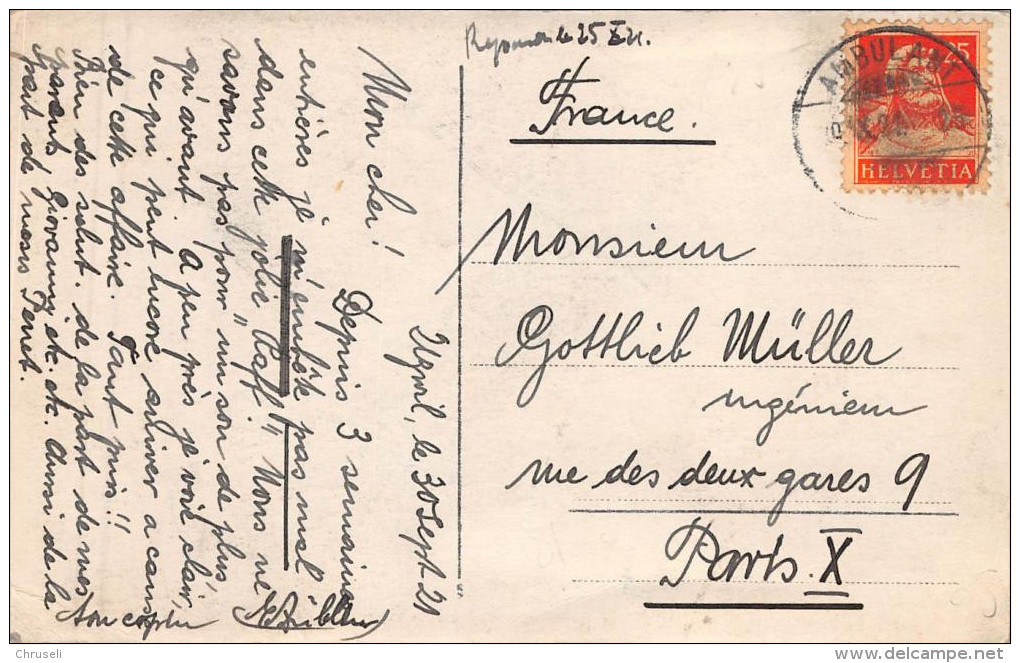 25 X 21.
France.
AMBULANT
25
HELVETIA
Monsieur
Gottlieb Müller
ingénieur
rue des deux gares 9
Paris. X
le 30 Sept 21
Mon cher! Depuis 3 semaines
entières je m'embête pas mal
dans cette jolie "Caff", Nous ne
savons pas pour un sou de plus,
qu'avant. A peu près je vois clair,
ce qui peut encore arriver a cause
de cette affaire. Tant pis!!
Bien des salut. de la part de mes
parents, Giovanni etc. etc. Aussi de la
part de mons
Ton copain
Chruseli
delcampe.net